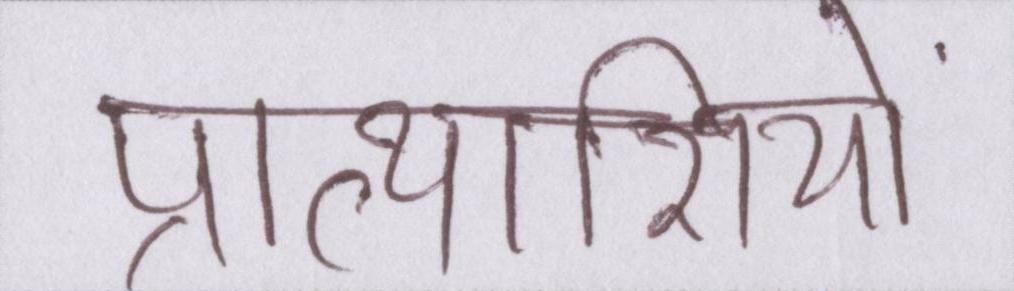 प्रात्याशियों